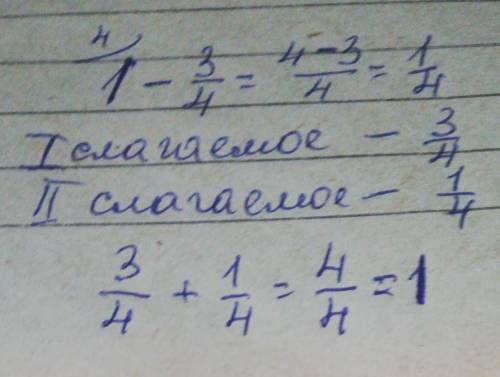 4
1 - 3/4 = 4-3/4 = 1/4
I слагаемое - 3/4
II слагаемое - 1/4
3/4 + 1/4 = 4/4 = 1